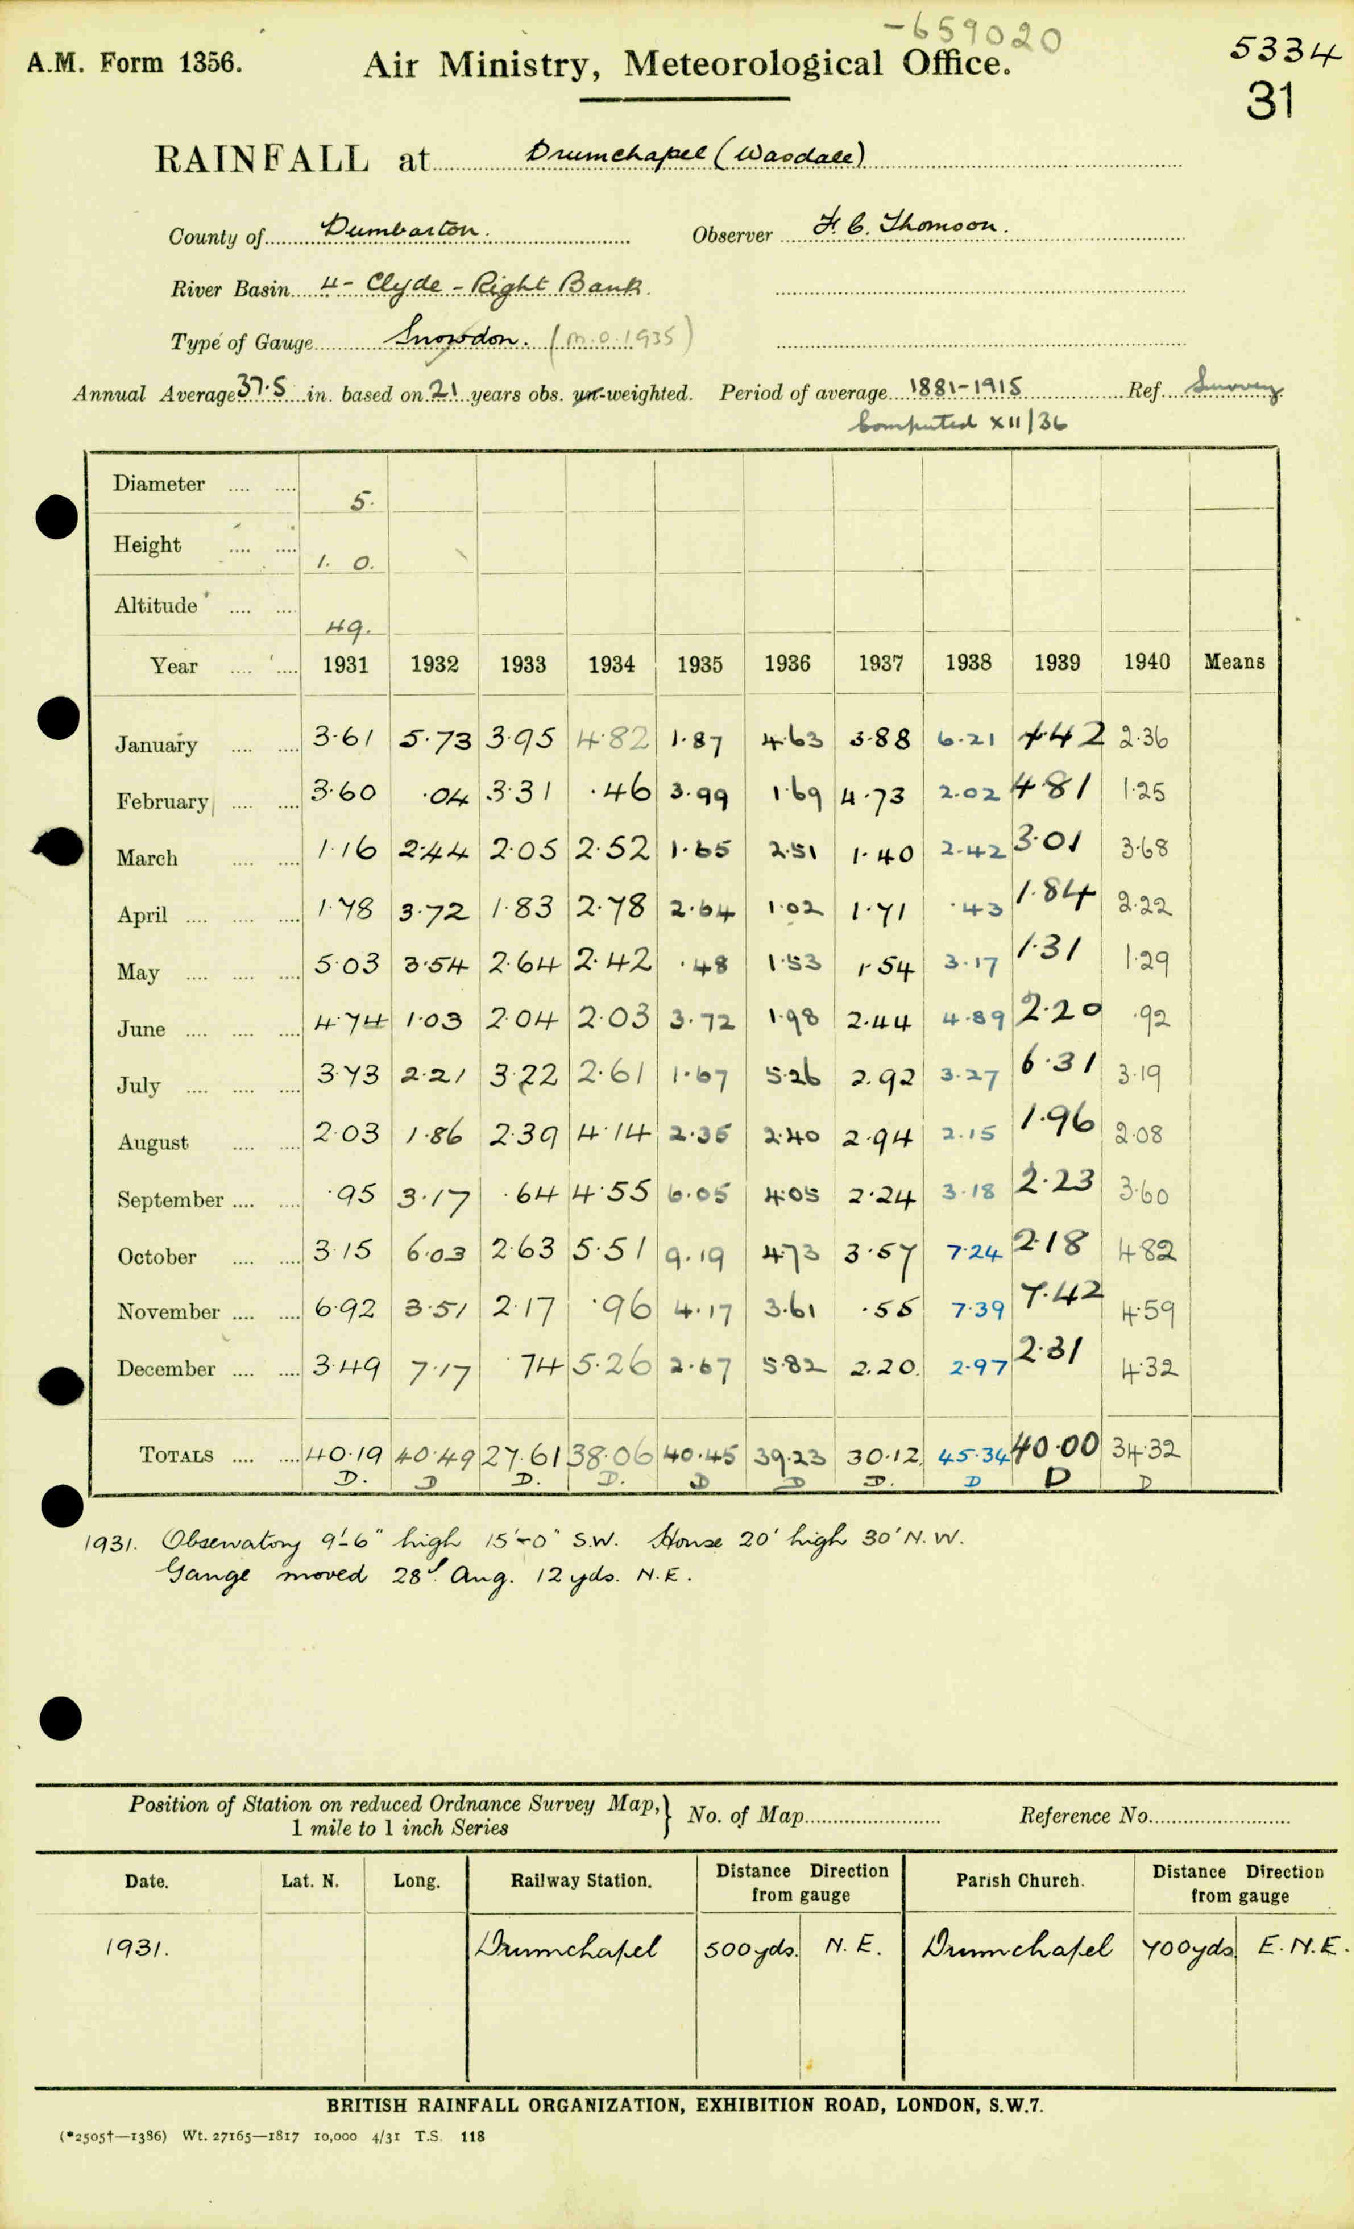 -659020
A.M. Form 1356. Air Ministry, Meteorological Office. 5334
31
RAINFALL at Drumchapel (Wasdale)
County of Dumbarton. Observer F. C. Thomson.
River Basin 4 - Clyde - Right Bank
Type of Gauge Snowdon. (M.O. 1935)
Annual Average 37.5 in. based on 21 years obs. un-weighted. Period of average 1881-1915 Ref. Survey
Computed XII/36
Diameter .... .... 5.
Height .... .... 1. 0.
Altitude .... .... 49.
Year .... .... 1931 1932 1933 1934 1935 1936 1937 1938 1939 1940 Means
January .... .... 3.61 5.73 3.95 4.82 1.87 4.63 3.88 6.21 4.42 2.36
February .... .... 3.60 .04 3.31 .46 3.99 1.69 4.73 2.02 4.81 1.25
March .... .... 1.16 2.44 2.05 2.52 1.65 2.51 1.40 2.42 3.01 3.68
April .... .... .... 1.78 3.72 1.83 2.78 2.64 1.02 1.71 .43 1.84 2.22
May .... .... .... 5.03 3.54 2.64 2.42 .48 1.53 1.54 3.17 1.31 1.29
June .... .... .... 4.74 1.03 2.04 2.03 3.72 1.98 2.44 4.89 2.20 .92
July .... .... .... 3.73 2.21 3.22 2.61 1.67 5.26 2.92 3.27 6.31 3.19
August .... .... 2.03 1.86 2.39 4.14 2.35 2.40 2.94 2.15 1.96 2.08
September .... .... .95 3.17 .64 4.55 6.05 4.05 2.24 3.18 2.23 3.60
October .... .... 3.15 6.03 2.63 5.51 9.19 4.73 3.57 7.24 2.18 4.82
November .... .... 6.92 3.51 2.17 .96 4.17 3.61 .55 7.39 7.42 4.59
December .... .... 3.49 7.17 .74 5.26 2.67 5.82 2.20. 2.97 2.31 4.32
TOTALS .... .... 40.19 40.49 27.61 38.06 40.45 39.23 30.12 45.34 40.00 34.32
D. D D. D. D D D. D D D
1931. Observatory 9'-6" high 15'-0" S.W. House 20' high 30' N.W.
Gauge moved 28th Aug. 12 yds. N.E.
Position of Station on reduced Ordnance Survey Map,} No. of Map Reference No.
1 mile to 1 inch Series
Date. Lat. N. Long. Railway Station. Distance Direction from gauge Parish Church. Distance Direction from gauge
1931. Drumchapel 500 yds. N.E. Drumchapel 700 yds E.N.E.
BRITISH RAINFALL ORGANIZATION, EXHIBITION ROAD, LONDON, S.W.7.
(*2505†—1386) Wt. 27165—1817 10,000 4/31 T.S. 118